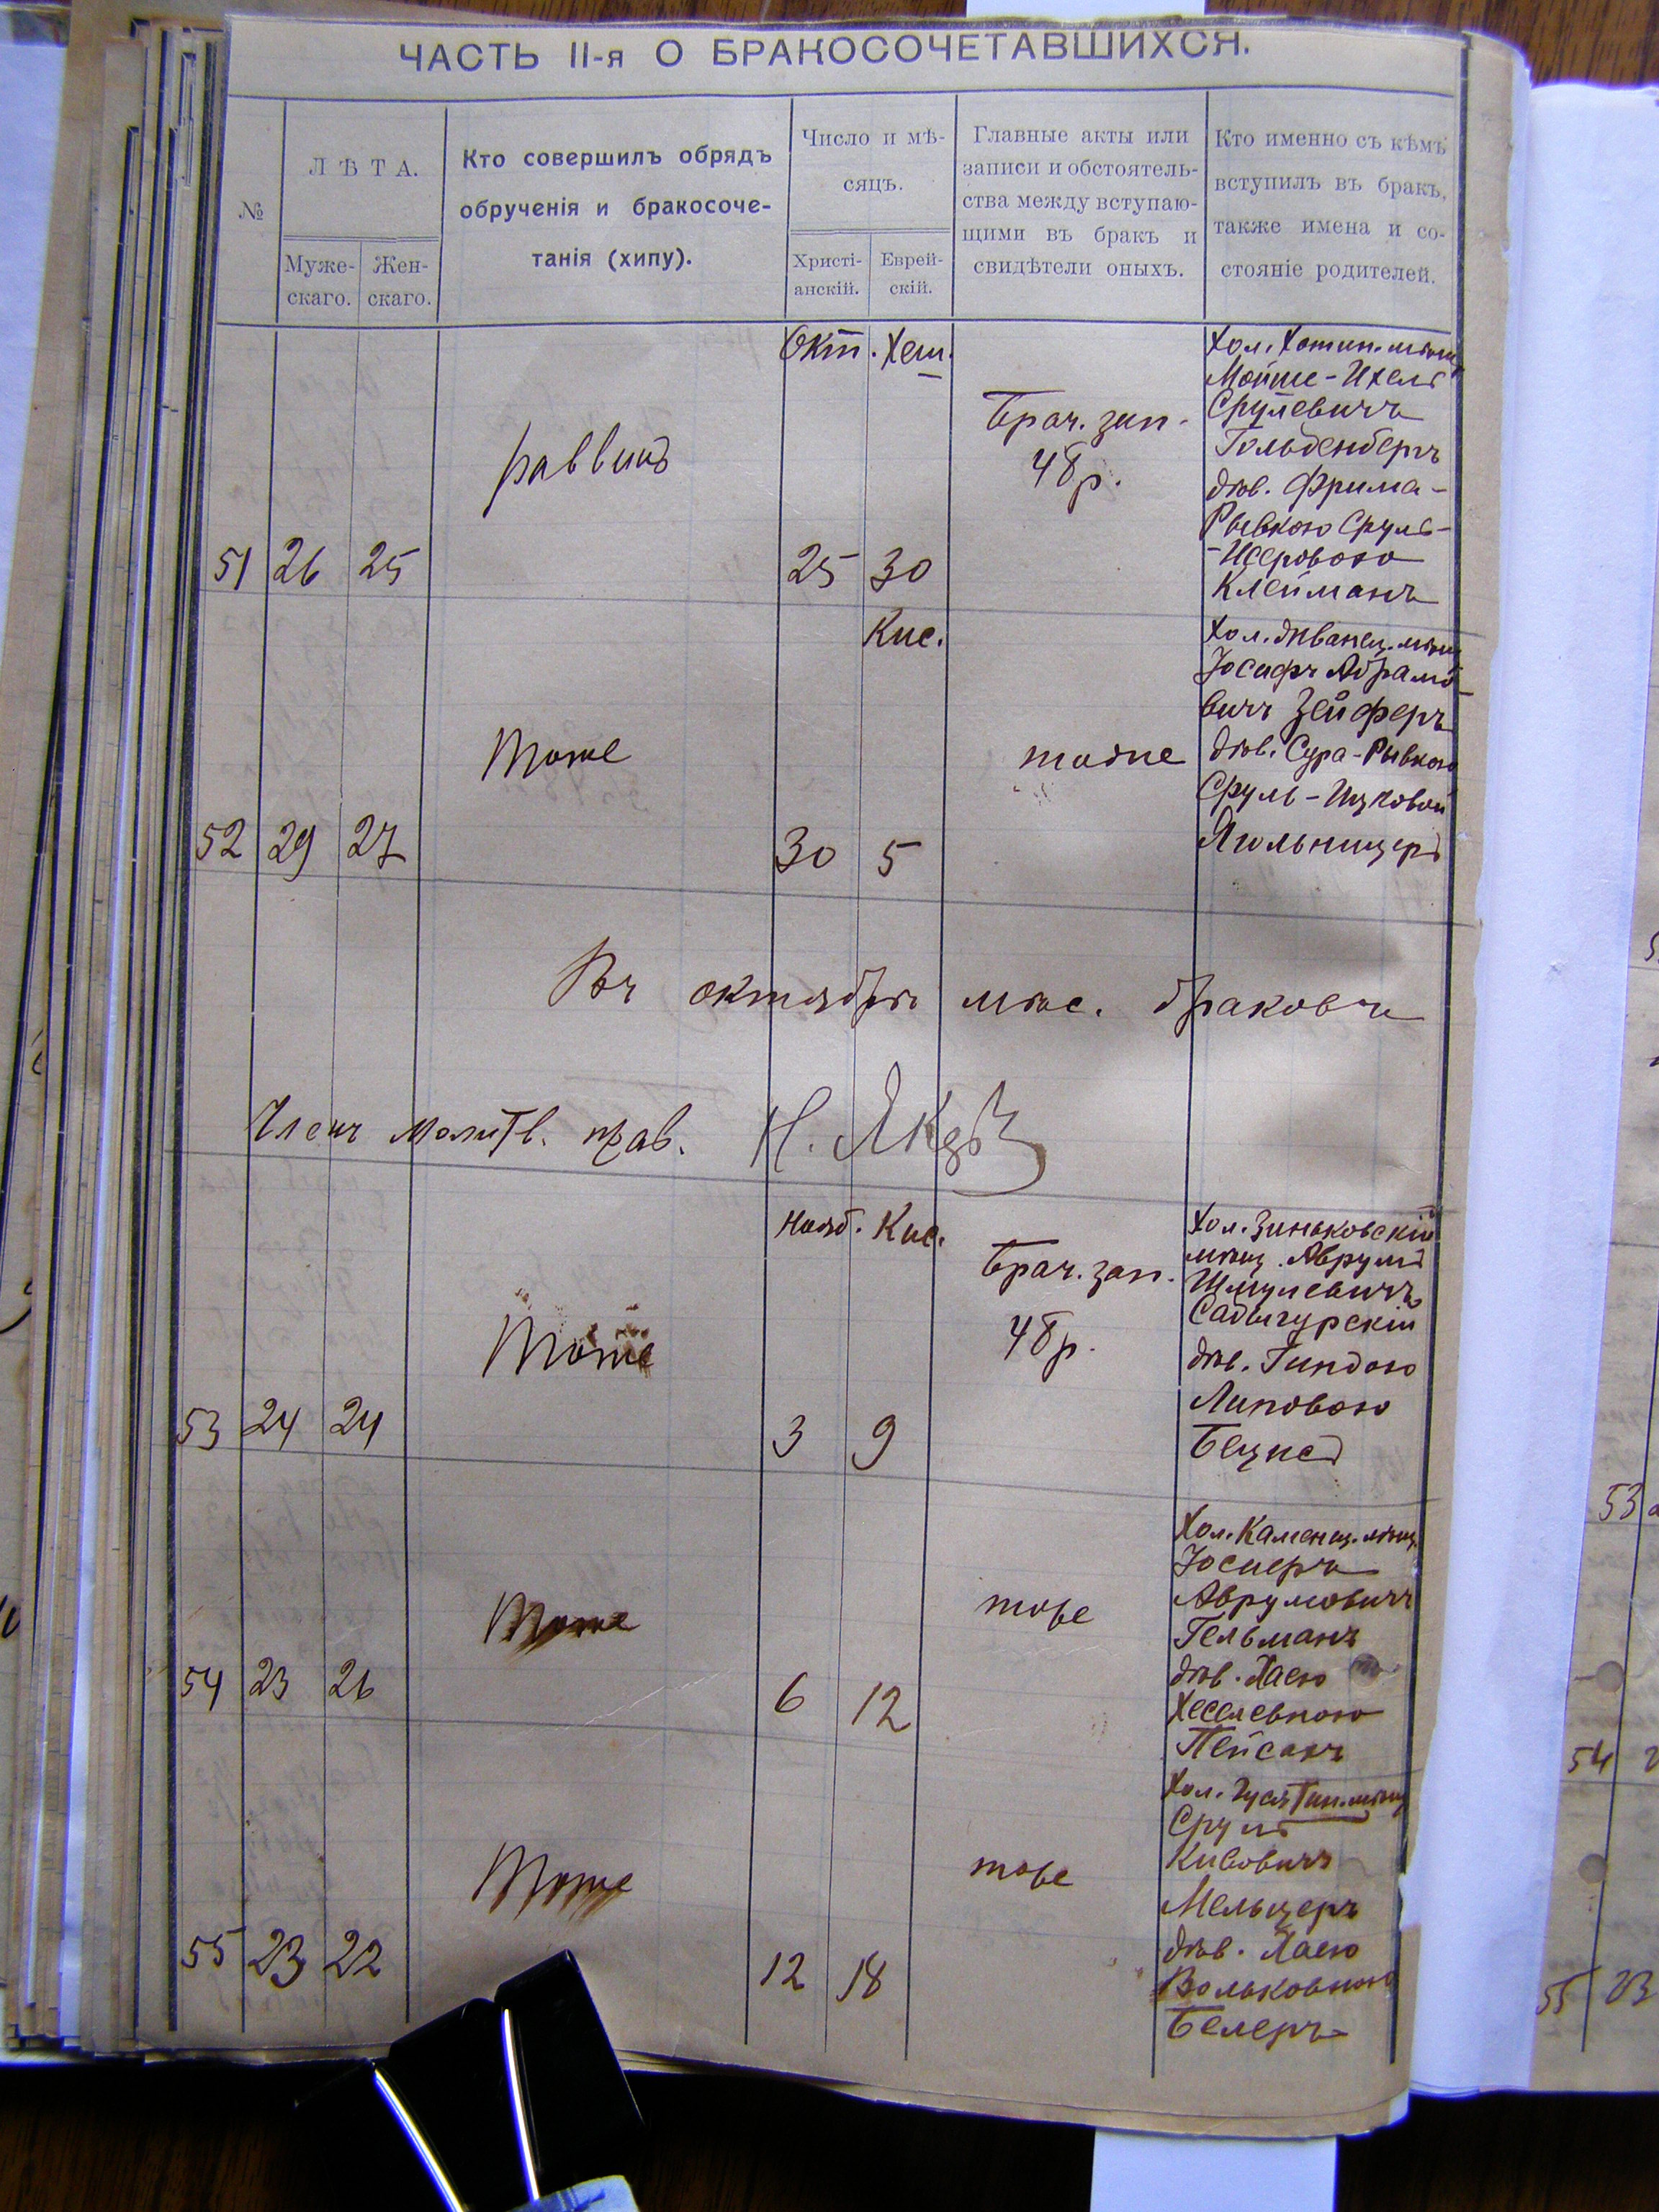 ЧАСТЬ II-я О БРАКОСОЧЕТАВШИХСЯ.
№
ЛѢТА.
Муже-
скаго.
Жен-
скаго.
Кто совершилъ обрядъ
обрученія и бракосоче-
танія (хипу).
Число и мѣ-
сяцъ.
Христі-
анскій.
Еврей-
скій.
Главные акты или
записи и обстоятель-
ства между вступаю-
щими въ бракъ и
свидѣтели оныхъ.
Кто именно съ кѣмъ
вступилъ въ бракъ,
также имена и со-
стояніе родителей.
51 26 25
раввинъ
Окт. Хеш.
25 30
Брач. зап.
48 р.
Хол. Хотин. мѣщ
Мойше-Ихель
Срулевичъ
Гольденбергъ
дѣв. Фрима-
Рывкою Сруль-
-Исеровою
Клейманъ
52 29 27
Тоже
Кис.
30 5
тоже
Хол. Жванец. мѣщ
Іосифъ Абрамо-
вичъ Зейферъ
дѣв. Сура-Рывкою
Сруль-Ицковой
Ягольницеръ
Въ октябрѣ мѣс. браковъ
Членъ молитв. прав.
53 24 24
Тоже
Нояб. Кис.
3 9
Брач. зап.
48 р.
Хол. Зиньковскій
мѣщ. Аврумъ
Шмулевичъ
Садыгурскій
дѣв. Гиндою
Липовою
54 23 26
Тоже
6 12
тоже
Хол. Каменец. мѣщ.
Аврумовичъ
Гельманъ
дѣв. Хаею
Пейсахъ
55 23 22
Тоже
12 18
тоже
Хол. Гусятин. мѣщ
Сруль
Кивовичъ
Мельцеръ
дѣв. Хаею
Вольковною
Белеръ
53
54
55 23